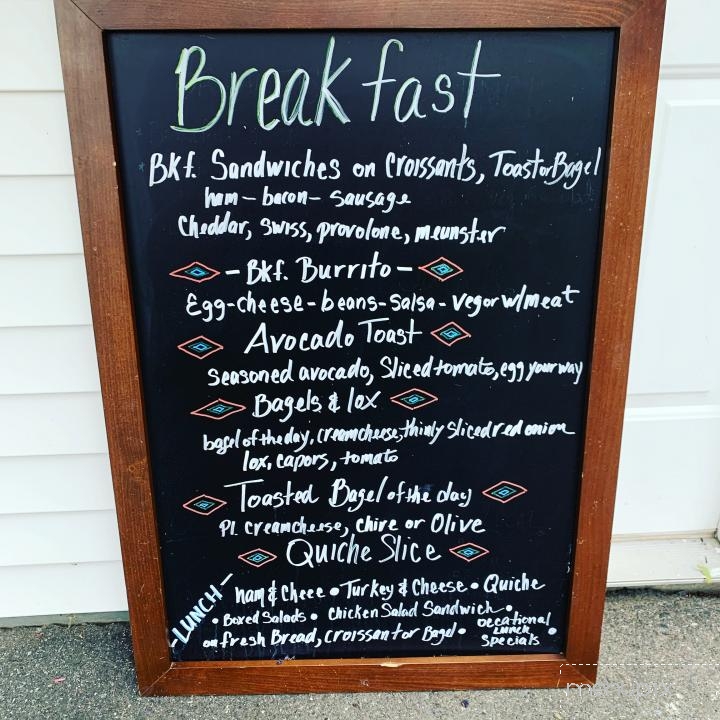 Breakfast
Bkf. Sandwiches on Croissants, Toast or Bagel
ham - bacon - sausage
Cheddar, swiss, provolone, meunster
- Bkf. Burrito -
Egg-cheese-beans-salsa-veg or w/meat
Avocado Toast
Seasoned avocado, Sliced tomato, egg your way
Bagels & lox
bagel of the day, creamcheese, thinly Sliced red onion
lox, capors, tomato
Toasted Bagel of the day
Pl. creamcheese, chire or Olive
Quiche Slice
-LUNCH-
ham & Cheee • Turkey & Cheese • Quiche
• Boxed Salads • Chicken Salad Sandwich •
on fresh Bread, Croissant or Bagel •
occational
Lunch
specials •